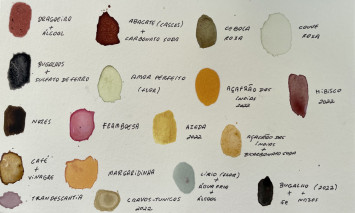 DRAGOEIRO
+
ÁLCOOL
ABACATE (CASCAS)
+
CARBONATO SODA
CEBOLA
ROXA
COUVE
ROXA
BUGALHOS
+
SULFATO DE FERRO
AMOR PERFEITO
(FLOR)
AÇAFRÃO DAS
ÍNDIAS
2022
HIBISCO
2022
NOZES
FRAMBOESA
AZEDA
2022
AÇAFRÃO DAS
ÍNDIAS
+
BICARBONATO SODA
CAFÉ
+
VINAGRE
MARGARIDINHA
LÍRIO (FLOR)
+
ÁGUA FRIA
+
ÁLCOOL
BUGALHO (2022)
+
FE
NOZES
TRANDESCANTIA
CRAVOS-TUNICOS
2022